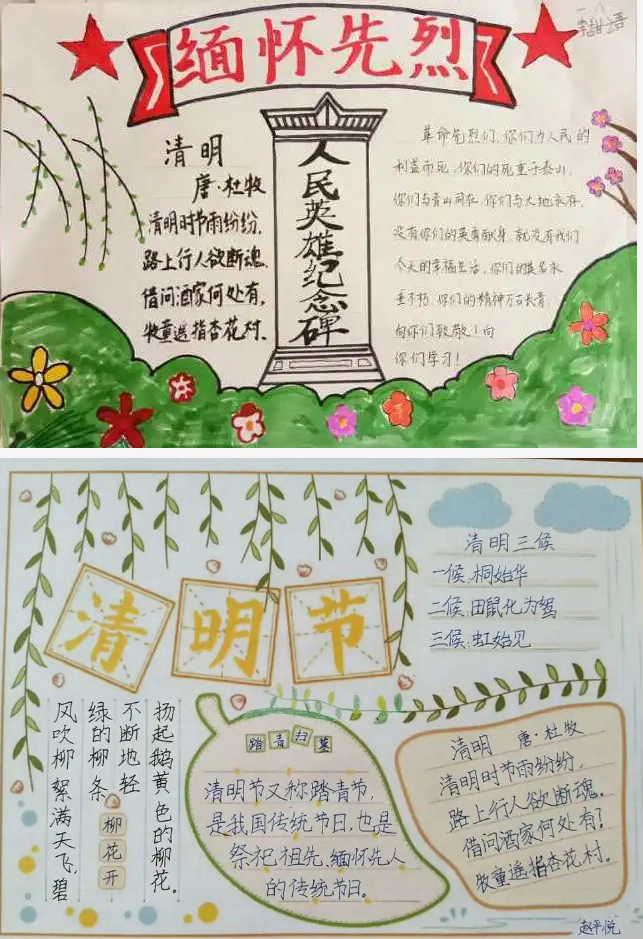 缅怀先烈
清明
唐·杜牧
清明时节雨纷纷,
路上行人欲断魂.
借问酒家何处有,
牧童遥指杏花村.
人民英雄纪念碑
革命先烈们,你们为人民的
利益而死,你们的死重于泰山,
你们与青山同在,你们与大地永存.
没有你们的英勇献身,就没有我们
今天的幸福生活,你们的英名永
垂不朽,你们的精神万古长青.
向你们致敬!向
你们学习!
清明节
清明三候
一候:桐始华
二候:田鼠化为鴽
三候:虹始见
扬起鹅黄色的柳花。
不断地轻
绿的柳条
风吹柳絮满天飞,碧
柳花开
踏青扫墓
清明节又称踏青节,
是我国传统节日,也是
祭祀祖先,缅怀先人
的传统节日。
清明 唐·杜牧
清明时节雨纷纷,
路上行人欲断魂。
借问酒家何处有?
牧童遥指杏花村。
赵平悦